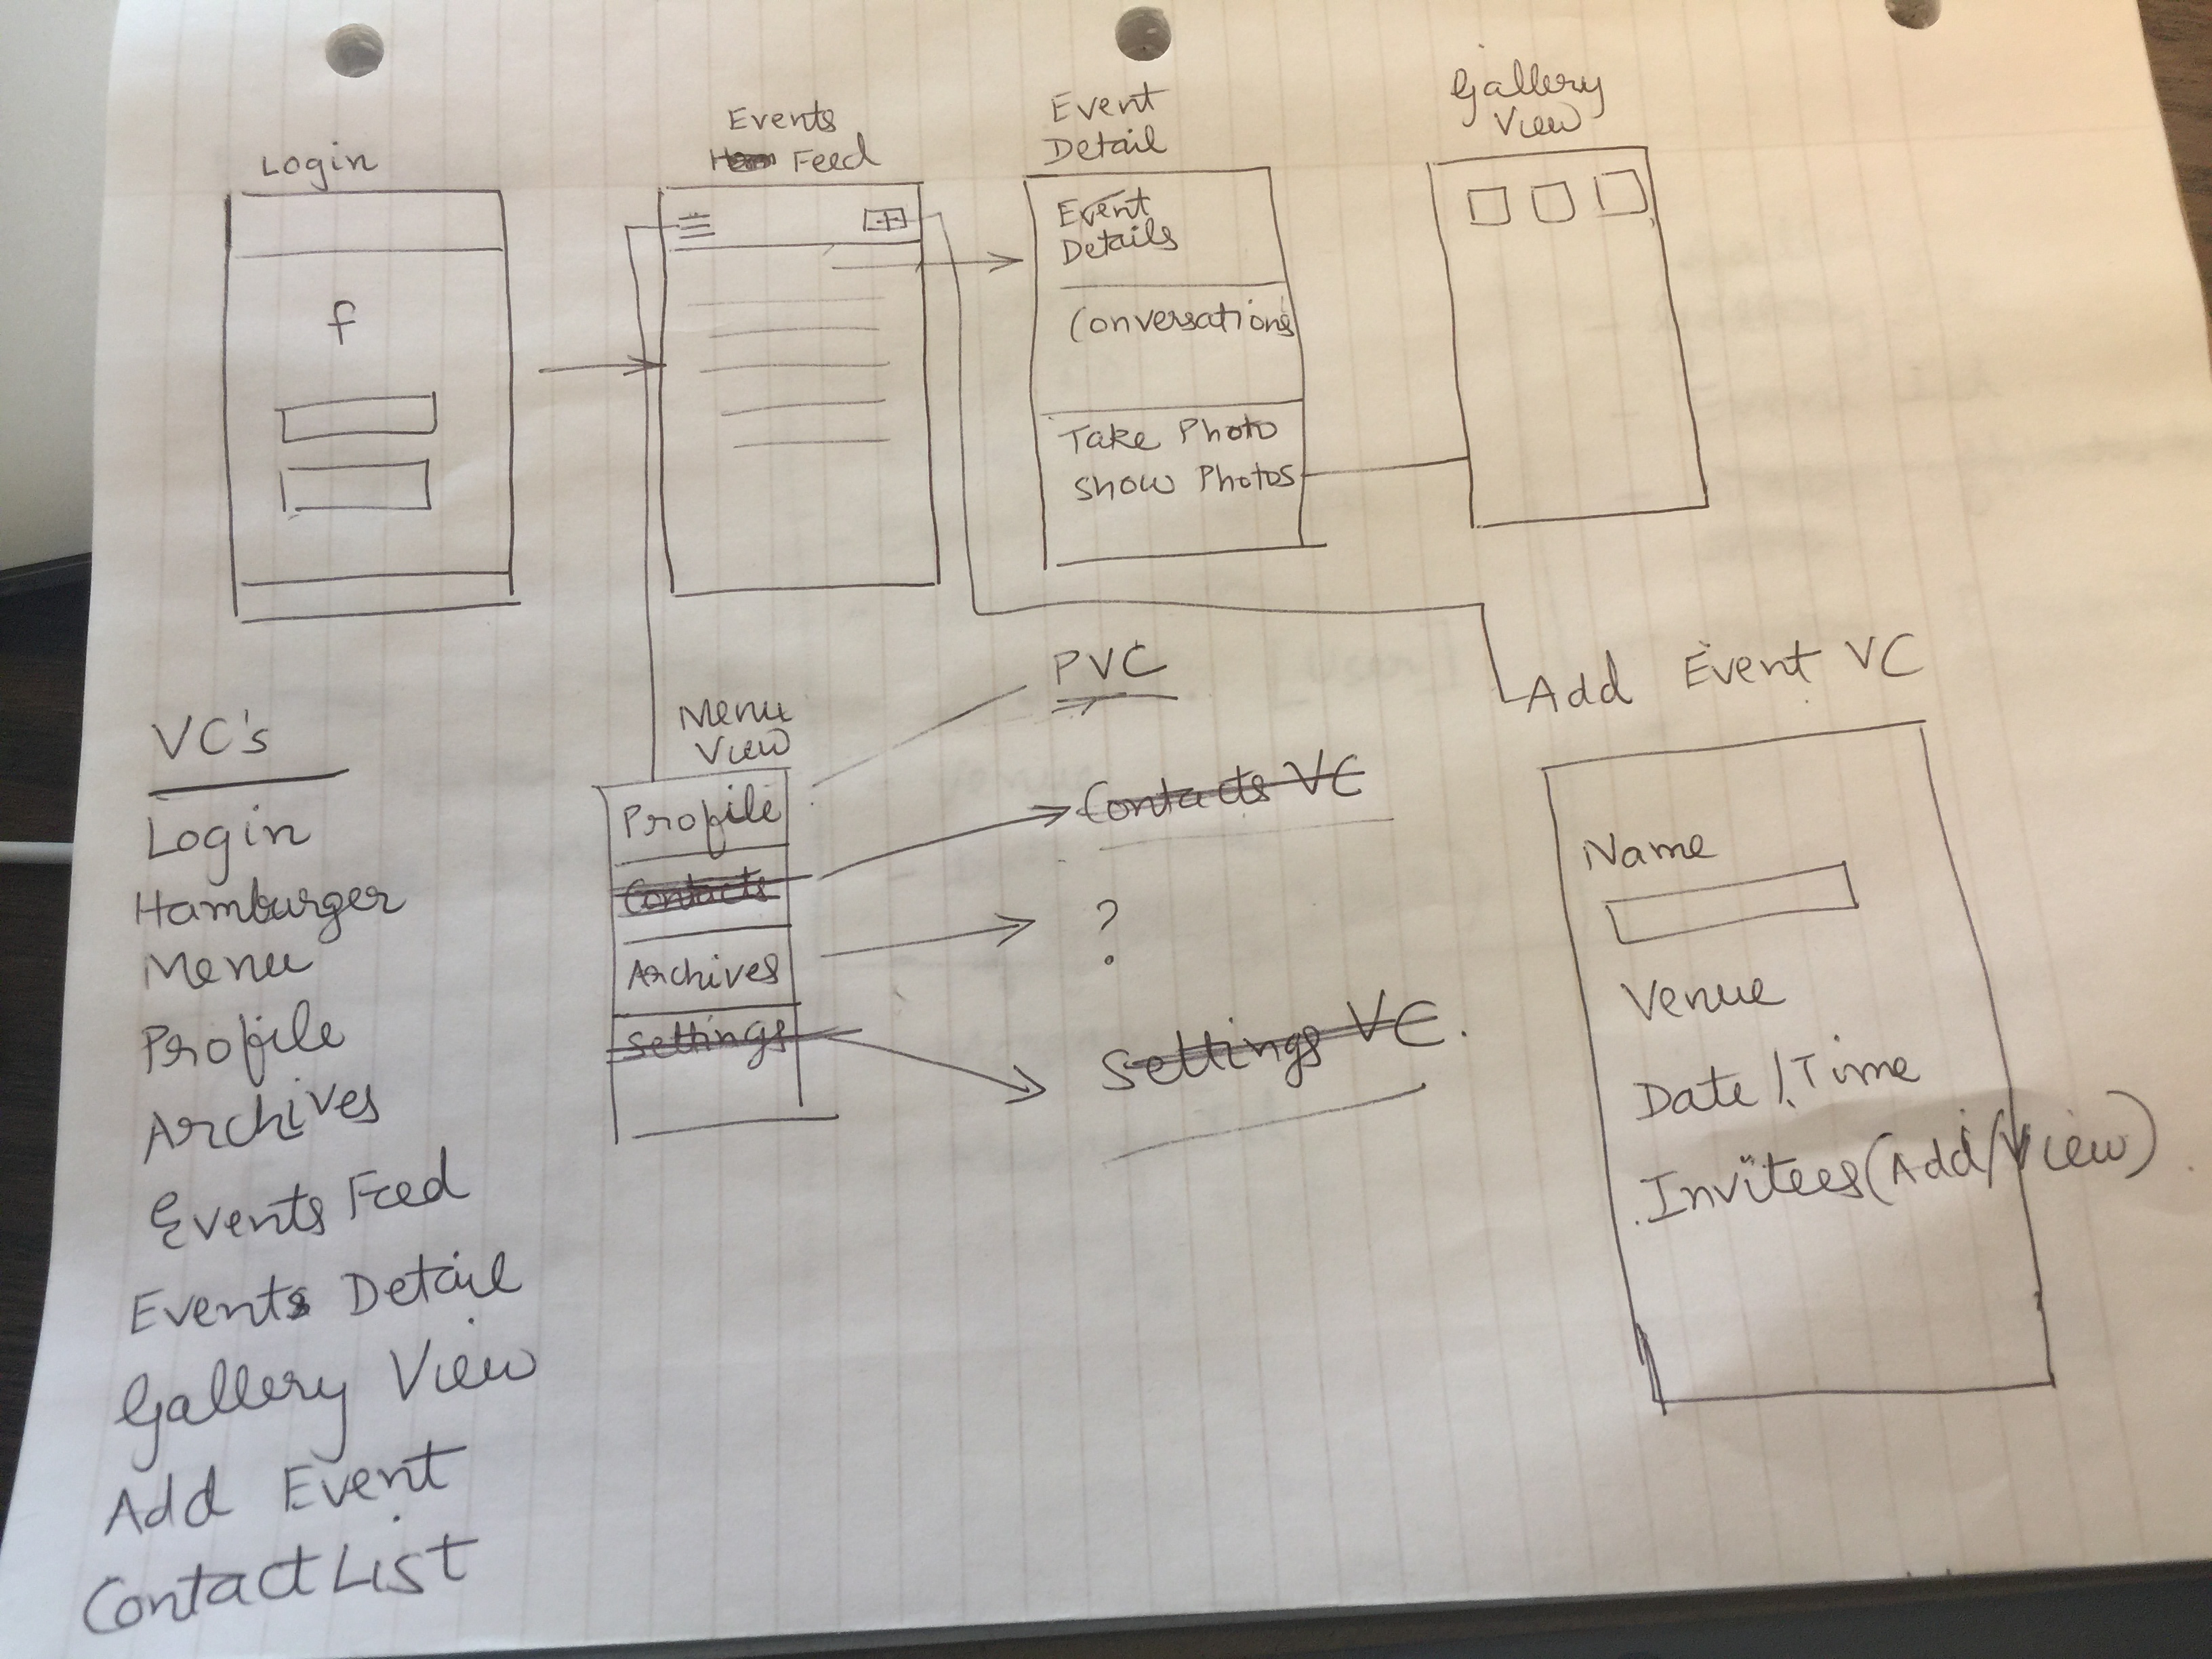 Login
Events
Feed
Event
Detail
Gallery
View
f
Event
Details
Conversations
Take Photo
Show Photos
Menu
View
Profile
Contacts
Archives
Settings
PVC
Contacts VC
?
Settings VC.
Add Event VC
Name
Venue
Date / Time
Invitees (Add/View)
VC's
Login
Hamburger
Menu
Profile
Archives
Events Feed
Events Detail
Gallery View
Add Event
Contact List